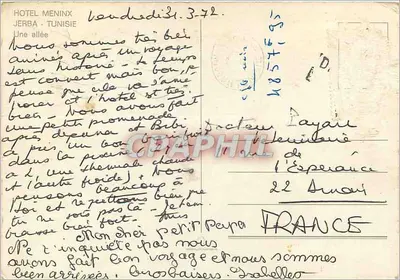 HOTEL MENINX
JERBA - TUNISIE
Une allée
Vendredi 31.3.72.
Nous sommes très bien
arrivés après un voyage
sans histoire. Le temps
est couvert mais bon, je
pense que cela va s'amé
liorer et l'hôtel est très
bien. Nous avons fait
une petite promenade
après déjeuner et Bibi
a pris un bon bain
dans la piscine
a 2, une thermale chaude
et l'autre froide). Nous
pensons beaucoup à
toi et regrettons bien que
tu ne sois pas là. Je t'em
brasse bien fort.
Mon cher petit Papa
Ne t'inquiète pas nous
avons fait bon voyage et nous sommes
bien arrivées. Gros baisers. Isabelle
Docteur Payan
Vétérinaire
rue de
l'Espérance
22 Dinan
FRANCE
48575 95
CPARHIL